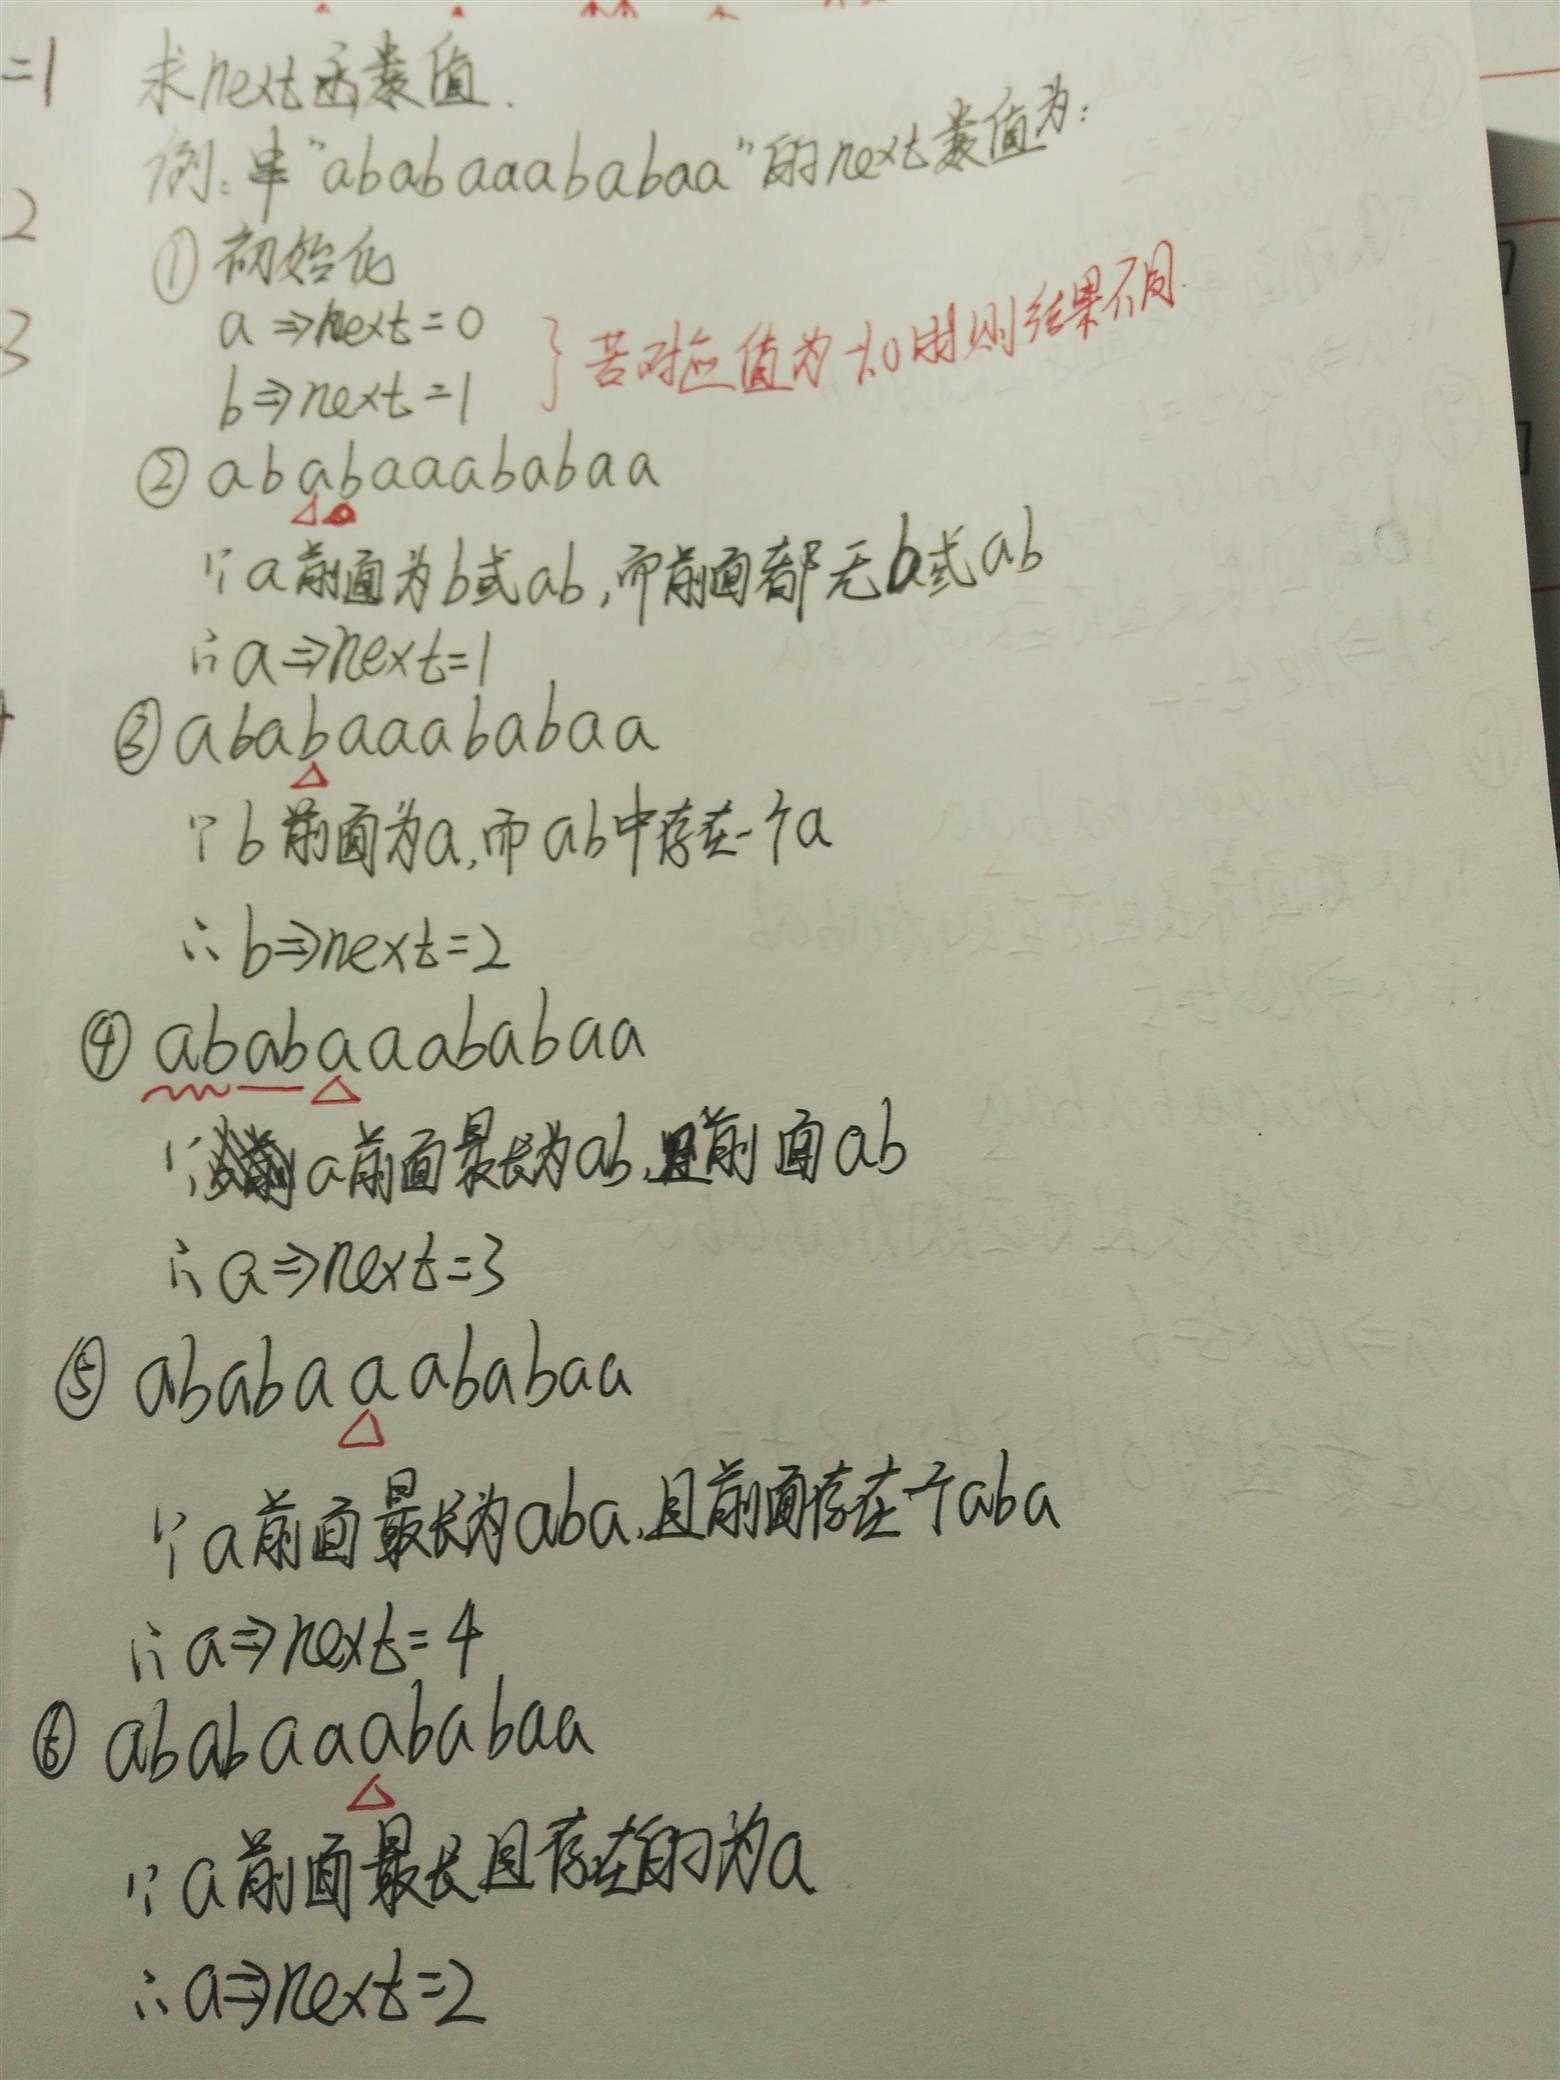 =1
2
3
求next函数值.
例:串"ababaaababaa"的next数值为:
①初始化
a⇒next=0
b⇒next=1
}若对应值为-1,0时则结果不同.
②ababaaababaa
∵a前面为b或ab,而前面都无b或ab
∴a⇒next=1
③ababaaababaa
∵b前面为a,而ab中存在一个a
∴b⇒next=2
④ababaaababaa
∵a前面最长为ab,且前面ab
∴a⇒next=3
⑤ababaaababaa
∵a前面最长为aba,且前面存在一个aba
∴a⇒next=4
⑥ababaaababaa
∵a前面最长且存在的为a
∴a⇒next=2